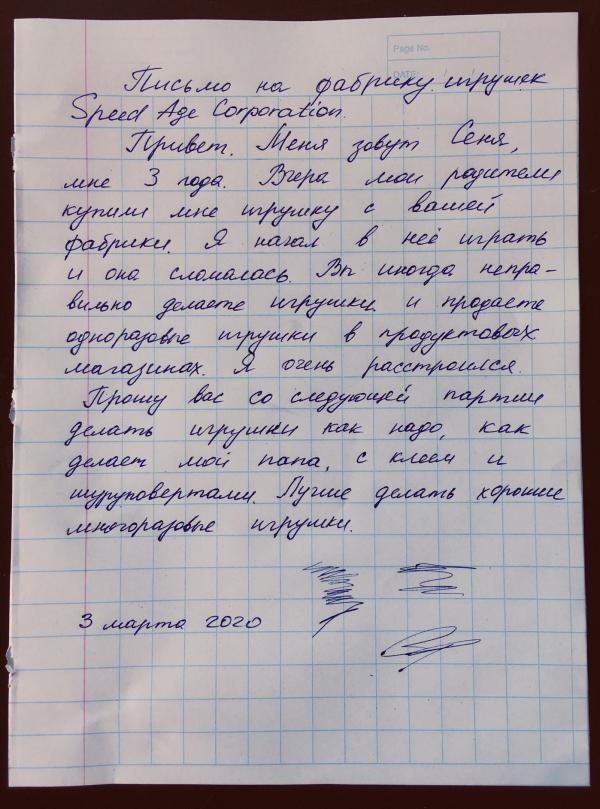 Page No.
DATE: / /
Письмо на фабрику игрушек
Speed Age Corporation.
Привет. Меня зовут Сеня,
мне 3 года. Вчера мои родители
купили мне игрушку с вашей
фабрики. Я начал в неё играть
и она сломалась. Вы иногда непра-
вильно делаете игрушки и продаете
одноразовые игрушки в продуктовых
магазинах. Я очень расстроился.
Прошу вас со следующей партии
делать игрушки как надо, как
делает мой папа, с клеем и
шуруповертами. Лучше делать хорошие
многоразовые игрушки.
3 марта 2020